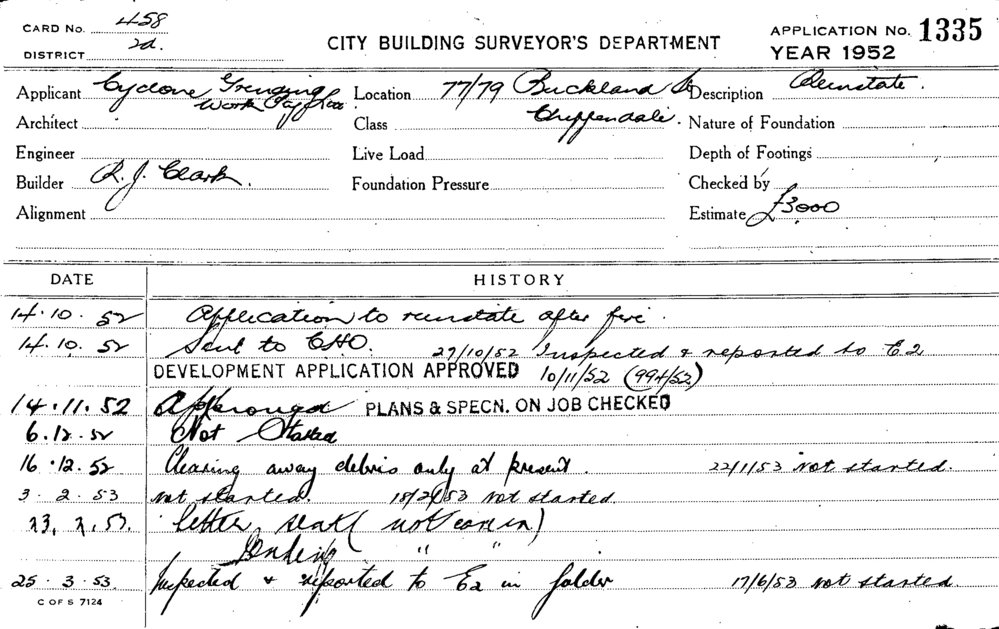 CARD NO. 458
DISTRICT 2d.
CITY BUILDING SURVEYOR'S DEPARTMENT
APPLICATION NO. 1335
YEAR 1952
Applicant Cyclone
Location 77/79 Buckland St
Chippendale.
Description Reinstate.
Architect
Class
Nature of Foundation
Engineer
Live Load
Depth of Footings
Builder R. J. Clark.
Foundation Pressure
Checked by
Alignment
Estimate £3000
DATE HISTORY
14.10.52 Application to reinstate after fire.
14.10.52 Sent to CHO. 27/10/52 Inspected & reported to E2
DEVELOPMENT APPLICATION APPROVED 10/11/52 (994/52)
14.11.52 Approved PLANS & SPECN. ON JOB CHECKED
6.12.52 Not Started
16.12.52 Clearing away debris only at present. 22/1/53 not started.
3.2.53 not started. 18/2/53 not started.
letter sent
" "
25.3.53 Inspected & reported to E2 in folder 17/6/53 not started.
C OF S 7124